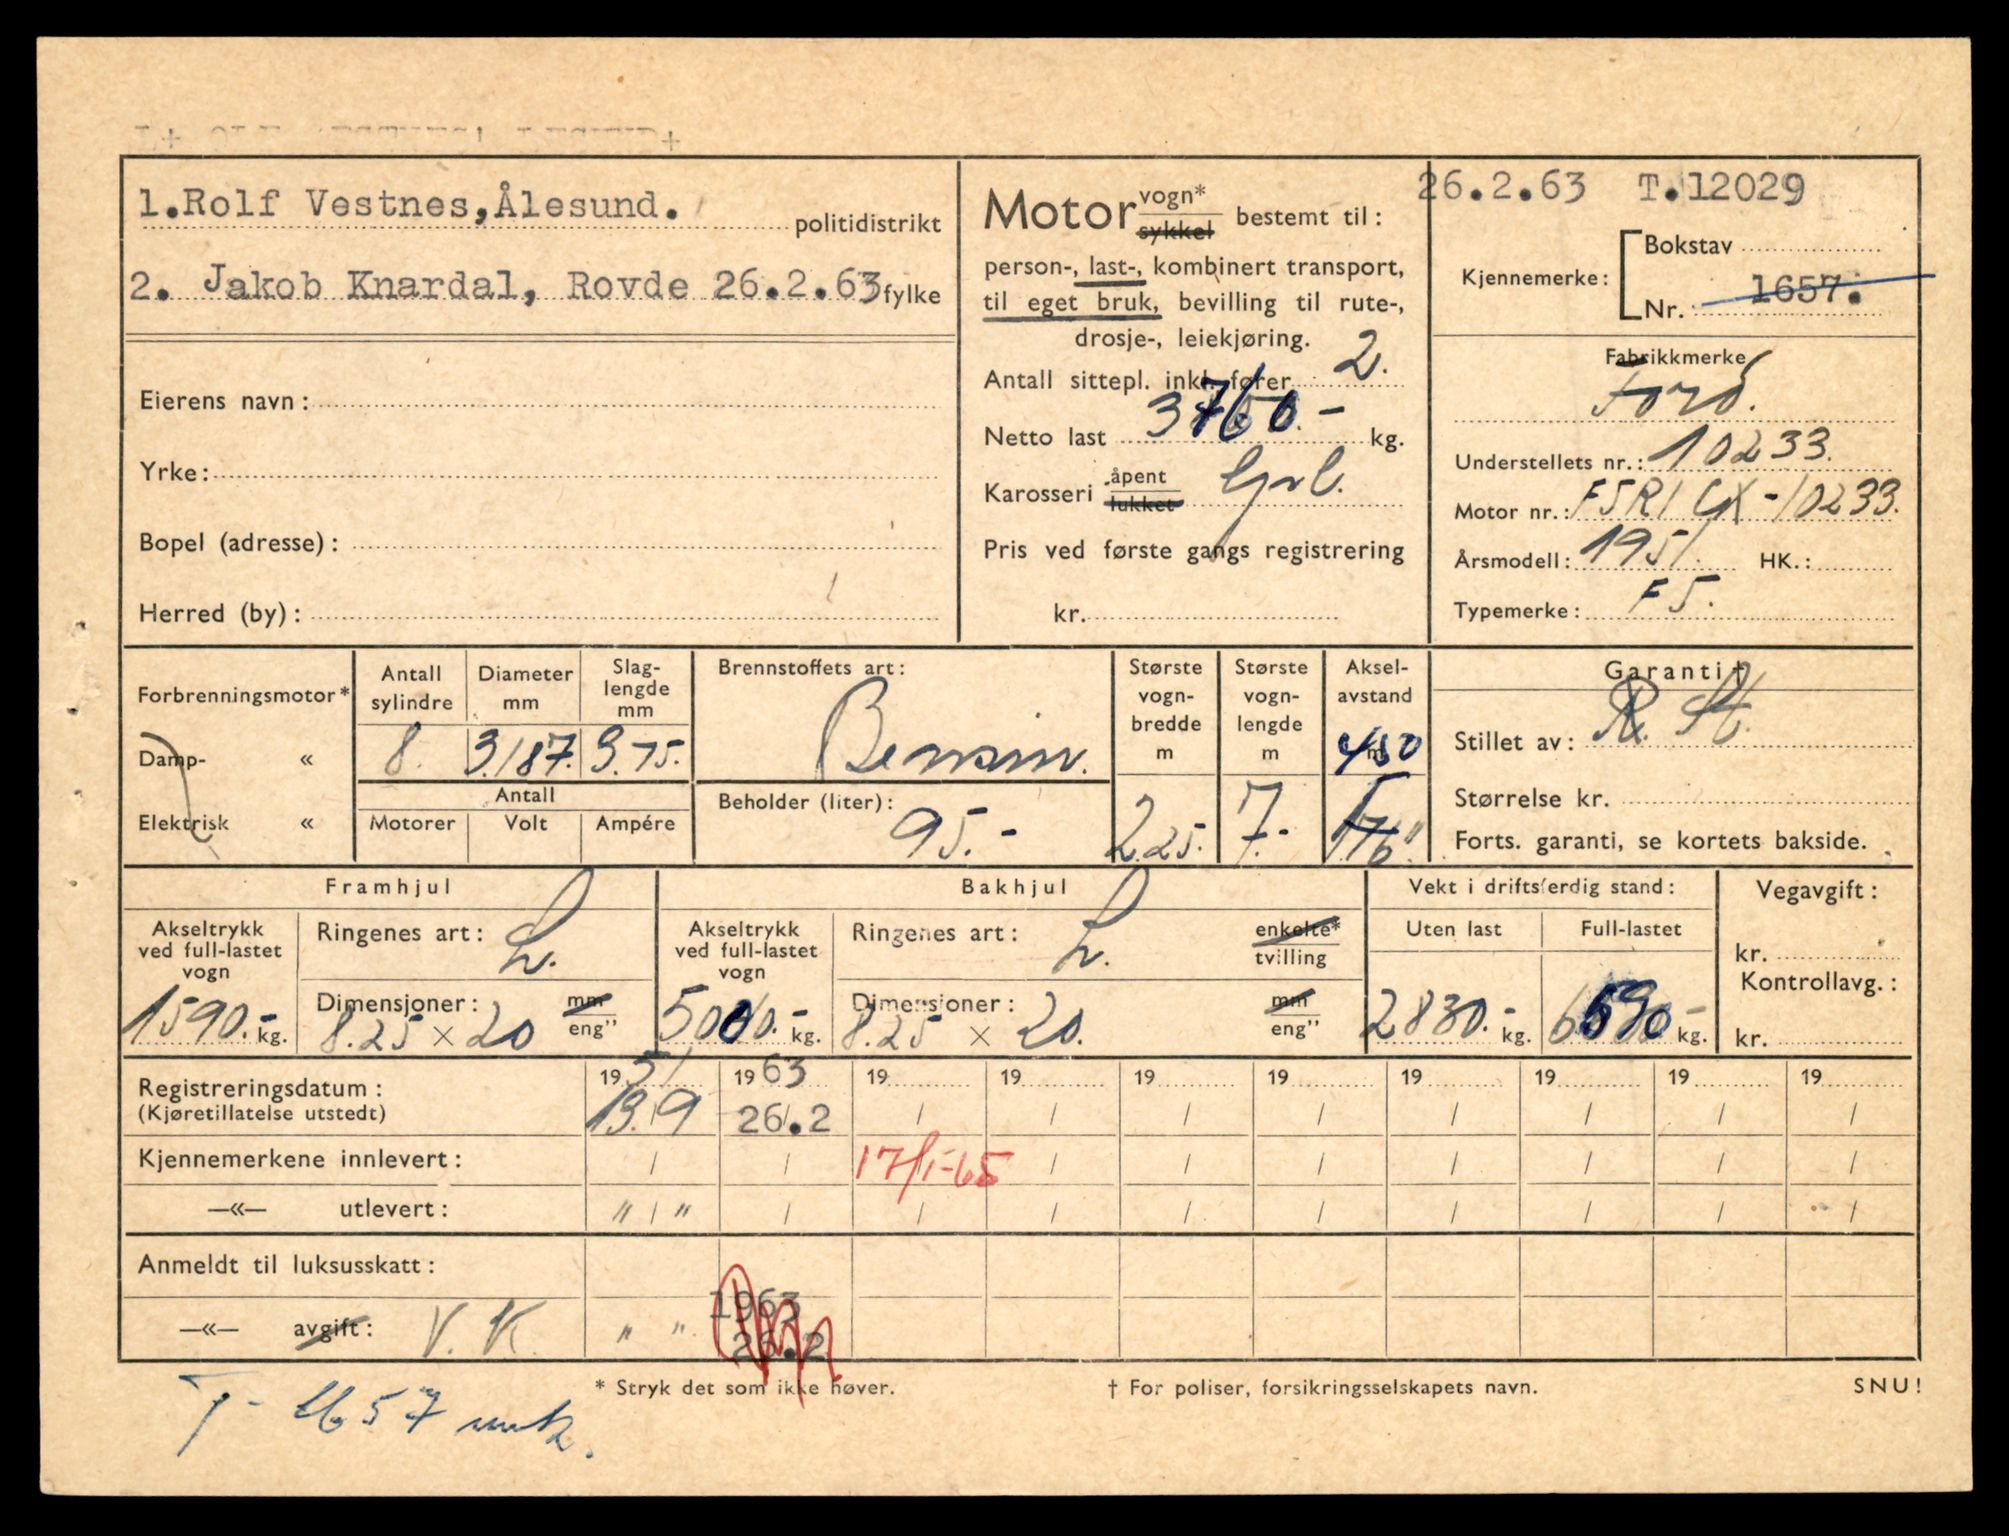 1.Rolf Vestnes,Ålesund. politidistrikt
2. Jakob Knardal, Rovde 26.2.63 fylke
Eierens navn:
Yrke:
Bopel (adresse):
Herred (by):
Motor vogn* sykkel bestemt til:
person-, last-, kombinert transport,
til eget bruk, bevilling til rute-,
drosje-, leiekjøring.
Antall sittepl. inkl. fører 2.
Netto last 3760.- kg.
Karosseri åpent lukket
Pris ved første gangs registrering
kr.
26.2.63 T.12029
Kjennemerke: Bokstav
Nr. 1657.
Fabrikkmerke
Ford.
Understellets nr.: 10233.
Motor nr.: F5R1CX-10233.
Årsmodell: 1951. HK.:
Typemerke: F5.
Forbrenningsmotor*
Damp- «
Elektrisk «
Antall sylindre Diameter mm Slag-lengde mm
8. 3.187. 3.75.
Antall
Motorer Volt Ampére
Brennstoffets art:
Bensin.
Beholder (liter):
95.-
Største vogn-bredde m
2.25.
Største vogn-lengde m
7.-
Aksel-avstand m
450
176"
Garanti†
Stillet av:
Størrelse kr.
Forts. garanti, se kortets bakside.
Framhjul
Akseltrykk ved full-lastet vogn
1590.- kg.
Ringenes art: L.
Dimensjoner: mm eng''
8.25 × 20
Bakhjul
Akseltrykk ved full-lastet vogn
5000.- kg.
Ringenes art: L. enkelte* tvilling
Dimensjoner: mm eng''
8.25 × 20.
Vekt i driftsferdig stand:
Uten last Full-lastet
2830.- kg. 6590- kg.
Vegavgift:
kr.
Kontrollavg.:
kr.
Registreringsdatum: 1951 1963 19 19 19 19 19 19 19 19
(Kjøretillatelse utstedt) 13/9 26.2 / / / / / / / /
Kjennemerkene innlevert: / / 17/1-65 / / / / / / /
—«— utlevert: " / " / / / / / / / / /
Anmeldt til luksusskatt:
—«— avgift: V.K. " ". 1963
26.2
* Stryk det som ikke høver. † For poliser, forsikringsselskapets navn. SNU!
T-1657